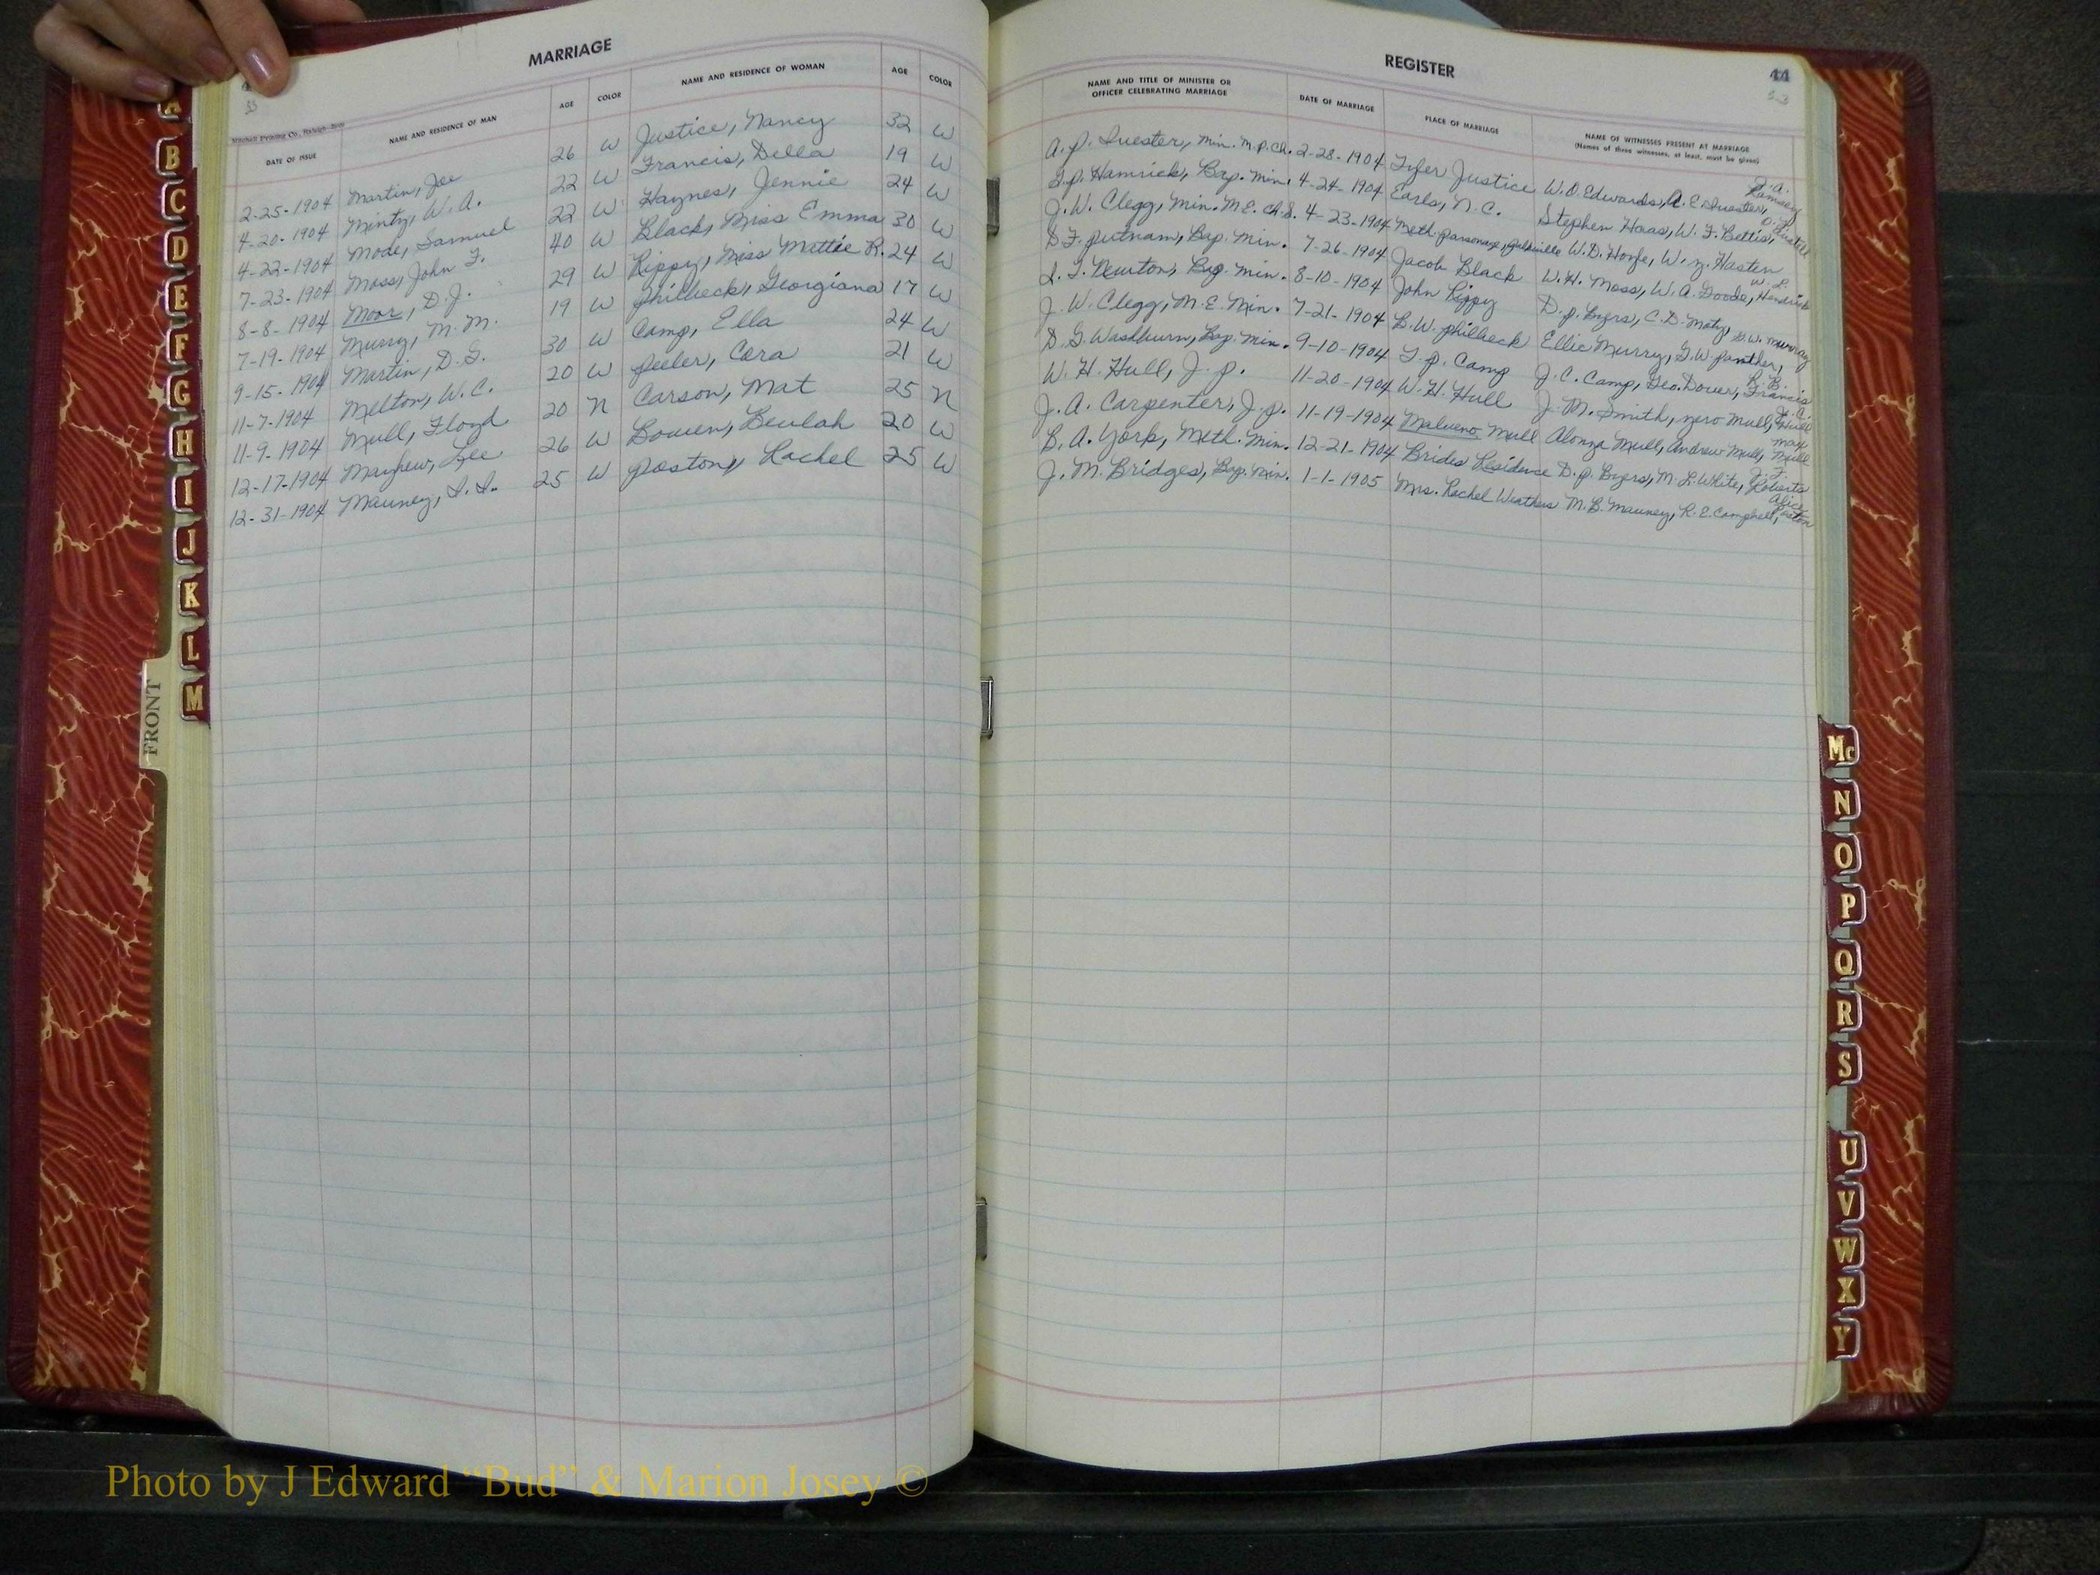 MARRIAGE
Mitchell Printing Co., Raleigh
DATE OF ISSUE NAME AND RESIDENCE OF MAN AGE COLOR NAME AND RESIDENCE OF WOMAN AGE COLOR
2-25-1904 Martin, Joe 26 W Justice, Nancy 32 W
4-20-1904 Mintz, W. A. 22 W Francis, Della 19 W
4-22-1904 Mode, Samuel 22 W Haynes, Jennie 24 W
7-23-1904 Moss, John F. 40 W Black, Miss Emma 30 W
8-8-1904 Moor, D. J. 29 W Rippy, Miss Mittie R. 24 W
7-19-1904 Murry, M. M. 19 W Philbeck, Georgiana 17 W
9-15-1904 Martin, D. G. 30 W Camp, Ella 24 W
11-7-1904 Melton, W. C. 20 W Peeler, Cora 21 W
11-9-1904 Mull, Floyd 20 N Carson, Mat 25 N
12-17-1904 Mayhew, Lee 26 W Bowen, Beulah 20 W
12-31-1904 Mauney, 25 W Poston, Rachel 25 W
REGISTER 44
53
NAME AND TITLE OF MINISTER OR
OFFICER CELEBRATING MARRIAGE
DATE OF MARRIAGE
PLACE OF MARRIAGE
NAME OF WITNESSES PRESENT AT MARRIAGE
(Names of three witnesses, at least, must be given)
Min. M.P. Ch. 2-28-1904 Tyler Justice W. O. Edwards, Ramsey
Hamrick, Bap. Min. 4-24-1904 Earls, N.C. Stephen Haas, W. F. Bettis,
J. W. Clegg, Min. M.E. Ch. S. 4-23-1904 Meth. Parsonage, W. D. Hasten
D. F. Putnam, Bap. Min. 7-26-1904 Jacob Black W. H. Moss, W. A. Goode, W. L. Hendrick
Newton, Bap. Min. 8-10-1904 John Rippy D. P. Byers, C. D.
J. W. Clegg, M. E. Min. 7-21-1904 B. W. Philbeck Ellie Murry, G. W. Panther, Murray
D. G. Washburn, Bap. Min. 9-10-1904 T. P. Camp J. C. Camp, Geo. Dover, Francis
W. H. Hull, J. P. 11-20-1904 W. H. Hull J. M. Smith, Hull
J. A. Carpenter, J. P. 11-19-1904 Mull Alonza Mull, Andrew Mull, May Mull
B. A. York, Meth. Min. 12-21-1904 Brides Residence D. P. Byers, M. L. White, Roberts
J. M. Bridges, Bap. Min. 1-1-1905 Mrs. Rachel Weathers M. B. Mauney, R. E. Campbell, Alice Poston
A
B
C
D
E
F
G
H
I
J
K
L
M
FRONT
Mc
N
O
P
Q
R
S
U
V
W
X
Y
Photo by J Edward “Bud” & Marion Josey ©